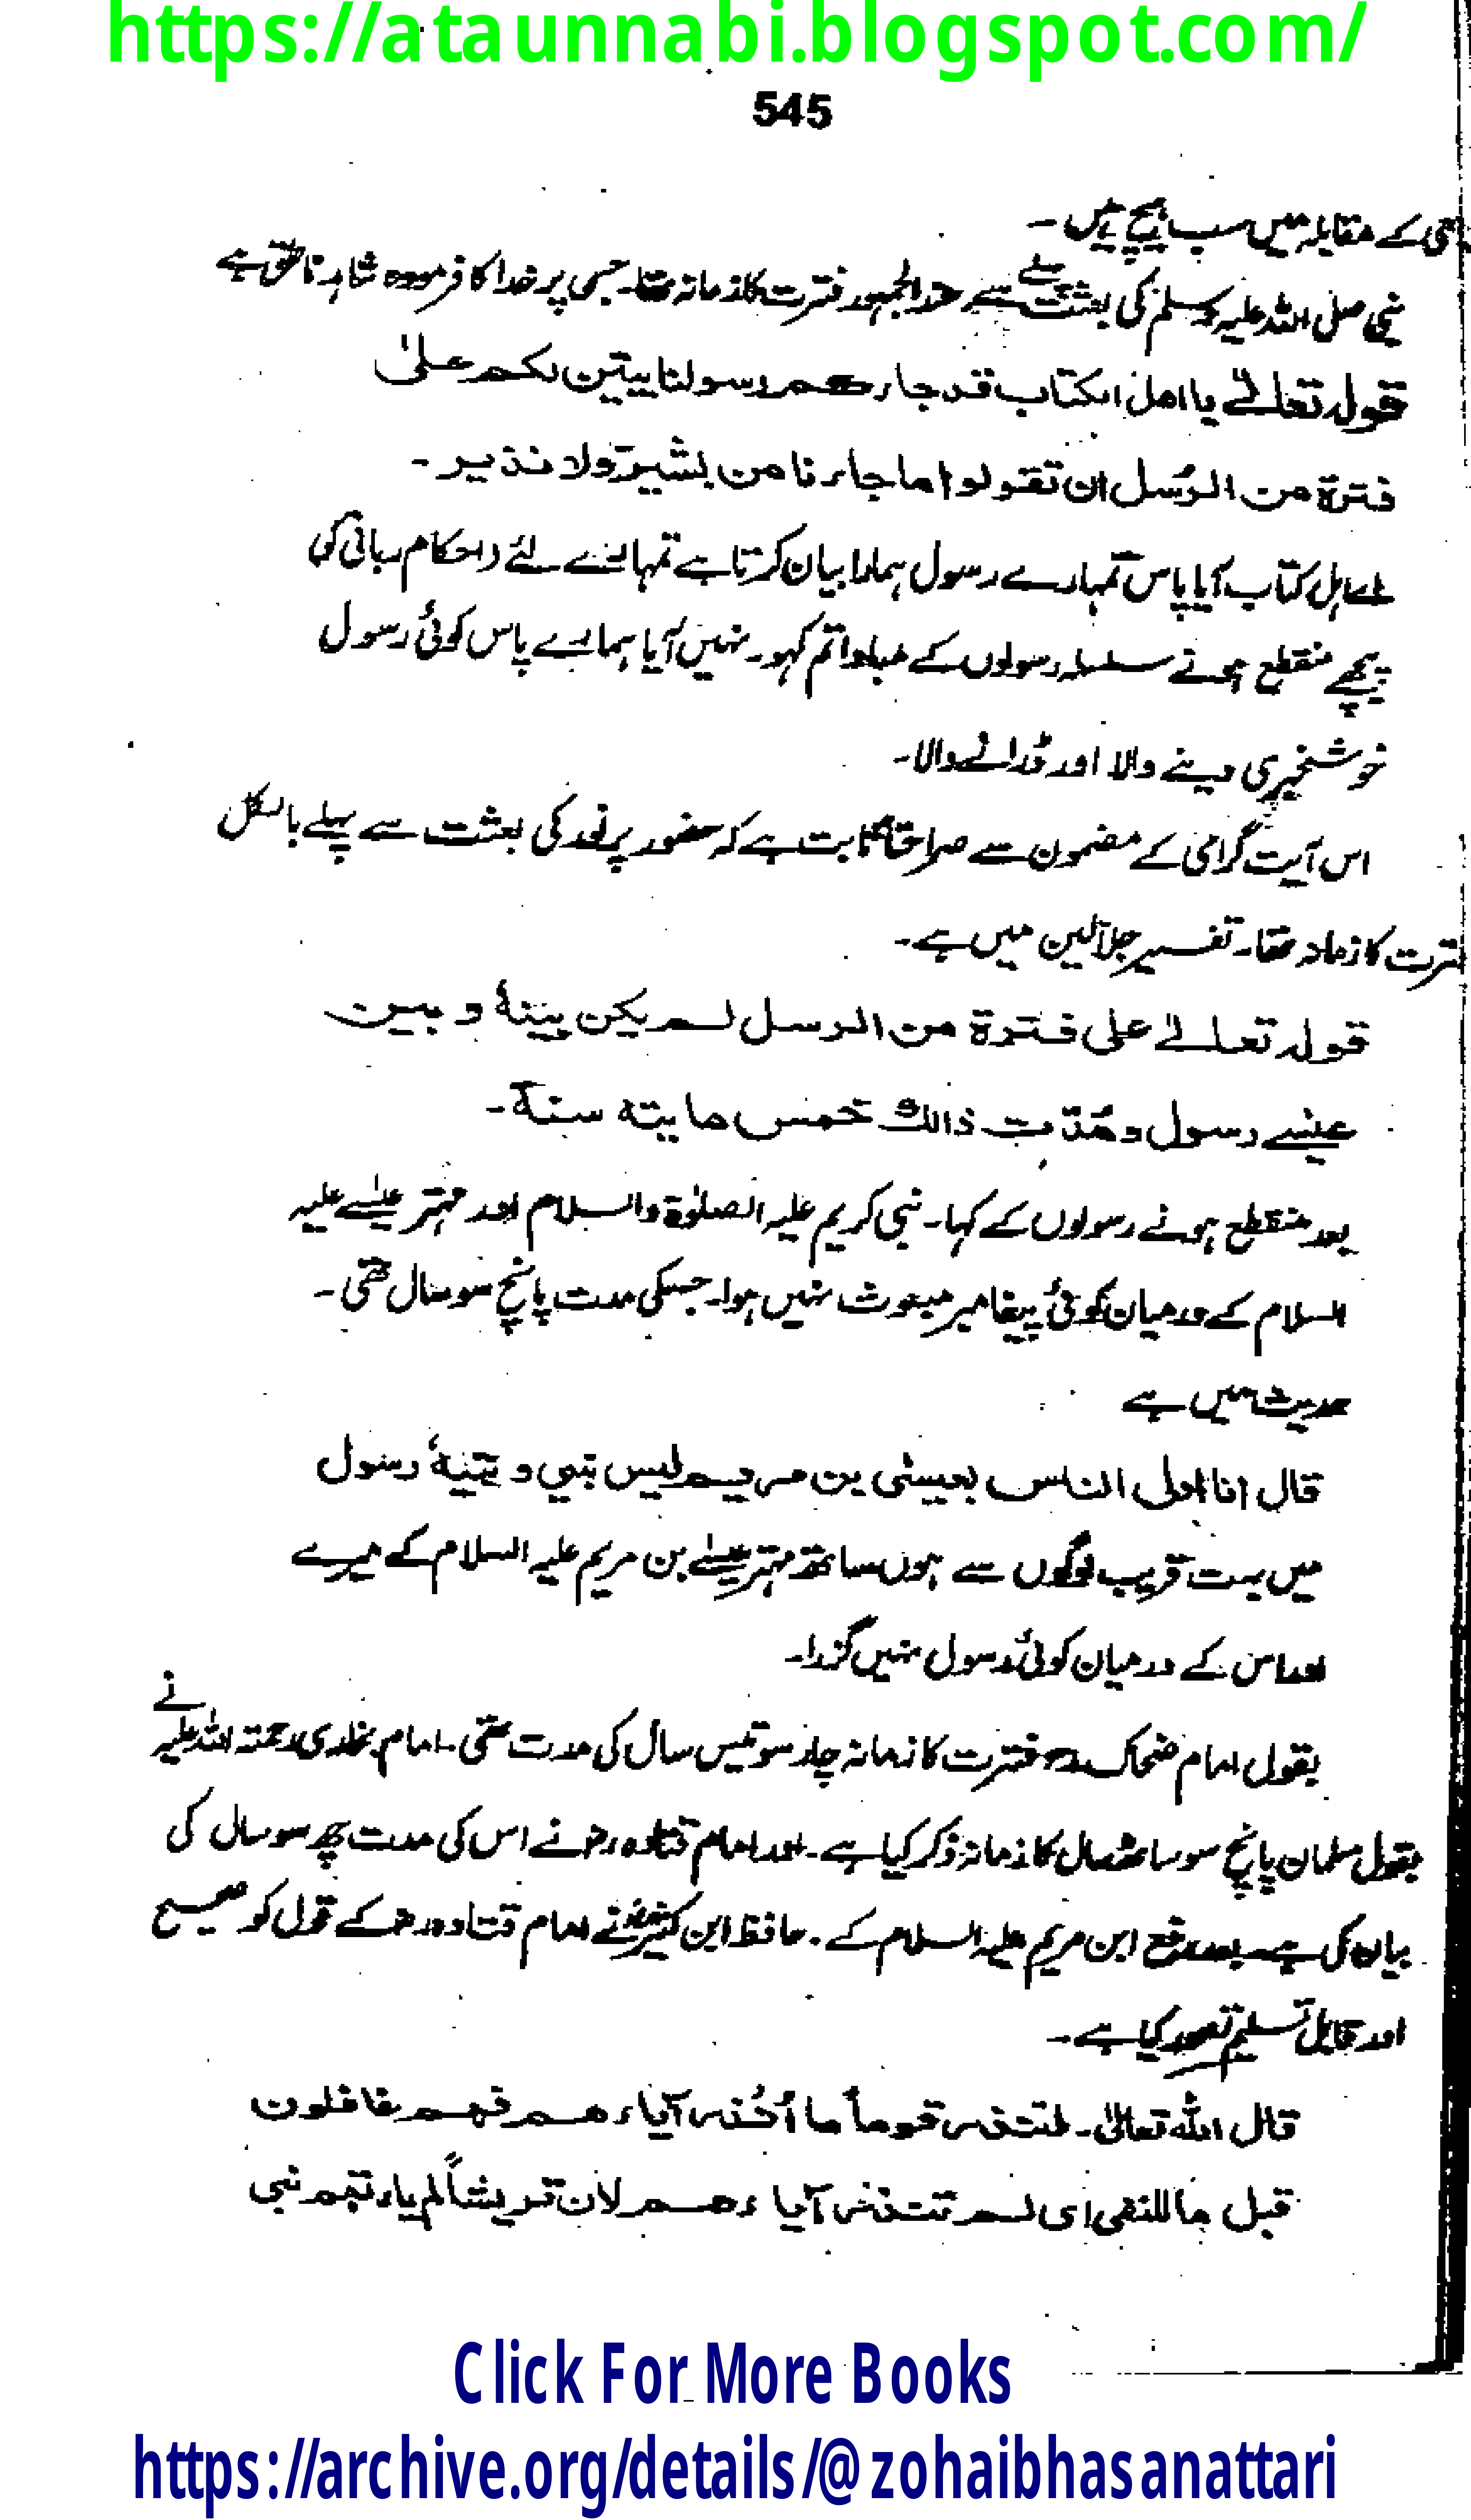 https://ataunnabi.blogspot.com/
545
کے مقابلہ میں سب ہیچ ہیں۔
نبی صلی اللہ علیہ وسلم کی بعثت سے پہلے عندالجمہور فترت کا زمانہ تھا۔ جس پر خدا کا فرمودہ شاہد ناطق ہے
قولہ تعالےٰ یا اھل الکتاب قد جاء کم رسولنا یبین لکم علیٰ
فترۃ من الرُسل ان تقولوا ما جاء نا من بشیر ولا نذیر۔
اے اہل کتاب آیا پاس تمہارے رسول ہمارا بیان کرتا ہے تمہارے لئے (احکام ربانی کی
پیچھے منقطع ہونے سلسلہ رسولوں کے مبادا تم کہو۔ نہیں آیا ہمارے پاس کوئی رسول
خوشخبری دینے والا اور ڈرانے والا۔
اس آیت گرامی کے مضمون سے صراحتاً ثابت ہے کہ حضور پرنور کی بعثت سے پہلے بالکل
فترت کا زمانہ تھا۔ تفسیر جلالین میں ہے۔
قولہ تعالےٰ علی فترۃ من الرسل لم یکن بینہٗ و بین
عیسےٰ رسول و مُدّت ذالک خمس مایتہ سنۃ۔
بعد منقطع ہونے رسولوں کے کہا۔ نبی کریم علیہ الصلوٰۃ والسلام اور مہتر عیسےٰ علیہ
السلام کے درمیان کوئی پیغامبر مبعوث نہیں ہوا۔ جسکی مدت پانچ سو سال تھی۔
حدیث میں ہے
قال انا اولی الناس بعیسیٰ بن مریم لیس بینی و بینہٗ رسول
میں بہت قریب لوگوں سے ہوں ساتھ مہتر عیسےٰ بن مریم علیہ السلام کے میرے
اور اس کے درمیان کوئی رسول نہیں گزرا۔
بقول امام ضحاک رح فترت کا زمانہ چار سو تیس سال کی مدت تھی۔ امام بخاری رحمتہ اللہ علیہ نے
بقول سلمان پانچ سو ساٹھ سال کا زمانہ ذکر کیا ہے۔ اور امام قتادہ رض نے اس کی مدت چھ سو سال کی
بیان کی ہے۔ بعد رفع ابن مریم علیہ السلام کے۔ حافظ ابن کثیر نے امام قتادہ رض کے قول کو صحیح
اور قابل تسلیم تصور کیا ہے۔
قال اللہ تعالیٰ۔ لتنذر قوماً ما اُنذر آباء ھم فھم غافلون
قبل ما للنفی ای لم تنذر آباء ھم لان قریشاً لم یاء تہم نبی
Click For More Books
https://archive.org/details/@zohaibhasanattari